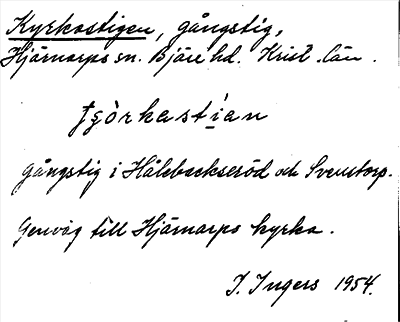 Kyrkostigen, gångstig,
Hjärnarps sn. Bjäre hd. Krist. län.
gångstig i Hålebackseröd och Svenstorp.
Genväg till Hjärnarps kyrka.
I. Ingers 1954.